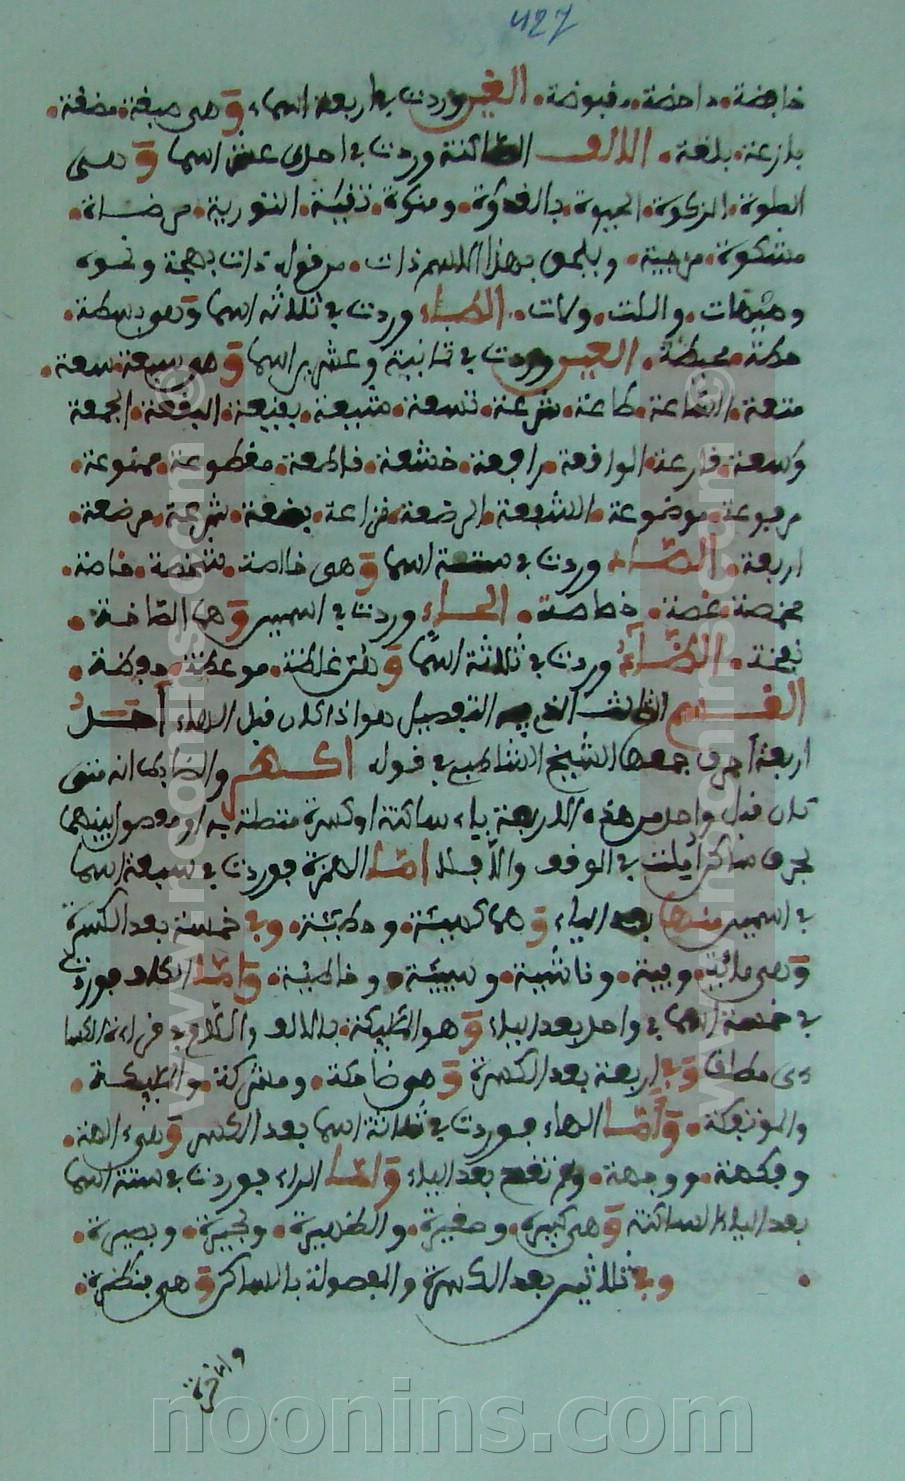 427
خافضة داحضة مقبوضة الغين وردت في اربعة اسماء وهي صبغة مضغة
بازغة بلغة الالف الساكنة وردت في احدى عشر اسما وهي
الصلوة الزكوة الحيوة بالغدوة ومنوة تقية التورية مرضاة
مشكوة مزجية ويلحق بهذا الاسم ذات من قوله ذات بهجة ونحوه
وهيهات واللت ولات الطاء وردت في ثلاثة اسما وهو بسطة
حطة محيطة العين وردت في ثمانية وعشرين اسما وهي سبعة سعة
متعة الساعة طاعة شرعة تسعة بقيعة البقعة الجمعة
وسعة قارعة الواقعة رافعة خشعة قاطعة مقطوعة ممنوعة
مرفوعة موضوعة الشفعة الرضعة نزاعة بضعة شرعة مرضعة
اربعة الصاد وردت في ستة اسما وهي خالصة شخصة خاصة
مخمصة غصة خصاصة الخاء وردت في اسمين وهما الصاخة
نفخة الظاء وردت في ثلاثة اسما وهي غلظة موعظة حفظة
القسم الثالث الذي فيه التفصيل هو اذا كان قبل الهاء احد
اربعة احرف جمعها الشيخ الشاطبي في قوله اكهر والضابط انه متى
كان قبل واحد من هذه الاربعة ياء ساكنة او كسرة متصلة به او مفصول بينهما
بحرف ساكن اميلت في الوقف والا فلا اما الهمزة فوردت في سبعة اسما
في اسمين منها بعد الياء وهما كهيئة وخطيئة وفي خمسة بعد الكسرة
وهي مائة وفئة وناشئة وسيئة وخاطئة واما الكاف فوردت
في خمسة اسما في واحد بعد الياء وهو الايكة بالالف واللام في قراءة الكسا
ءى مطلقا وفي اربعة بعد الكسرة وهي ضاحكة ومشركة والمليكة
والموتفكة واما الهاء فوردت في ثلاثة اسما بعد الكسر وهي الهة
وفكهة ووجهة ولم تقع بعد الياء واما الراء فوردت في ستة اسما
بعد الياء الساكنة وهي كبيرة وصغيرة والظهيرة وبحيرة وبصيرة
وفي ثلاثين بعد الكسرة والمفصولة بالساكن وهي فنظرة
واخرة
www.noonins.com ©
www.noonins.com ©
noonins.com